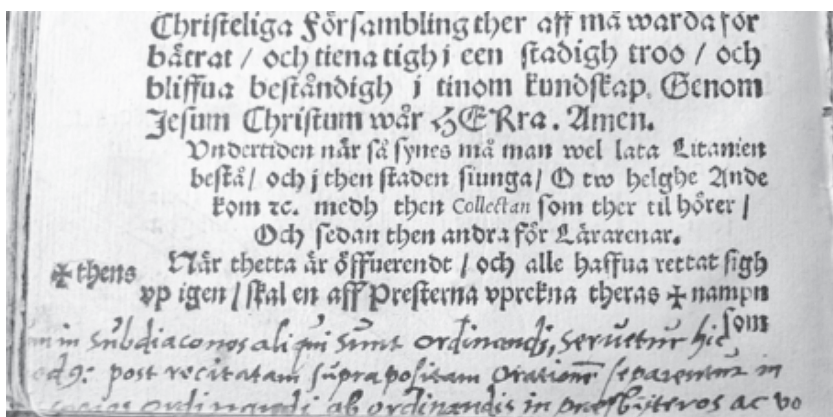 Christeliga Försambling ther aff må warda för
bätrat / och tiena tigh i een stadigh troo / och
bliffua beståndigh i tinom kundskap. Genom
Jesum Christum wår HERra. Amen.
Vndertiden när så synes må man wel lata Litanien
bestå / och j then staden siunga / O tw helghe Ande
kom ꝛc. medh then Collectan som ther til hörer /
Och sedan then andra för Lärarenar.
När thetta är öffuerendt / och alle haffua rettat sigh
✠ thens
vp igen / skal en aff Presterna vprekna theras ✠ nampn
som
in Subdiaconos aliqui sunt ordinandi, seruetur hic
post recitatam supra positam Orationē separentur in
ordinandi ab ordinandis in presbÿteros ac vo